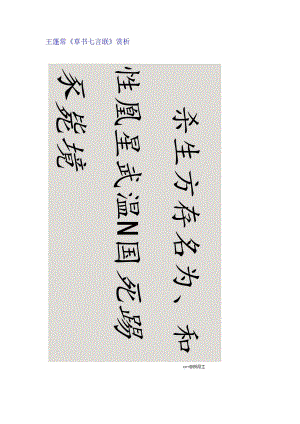 王蓬常《草书七言联》赏析
杀生方存名为、和
性凰星武温N国死踢
豕毙境